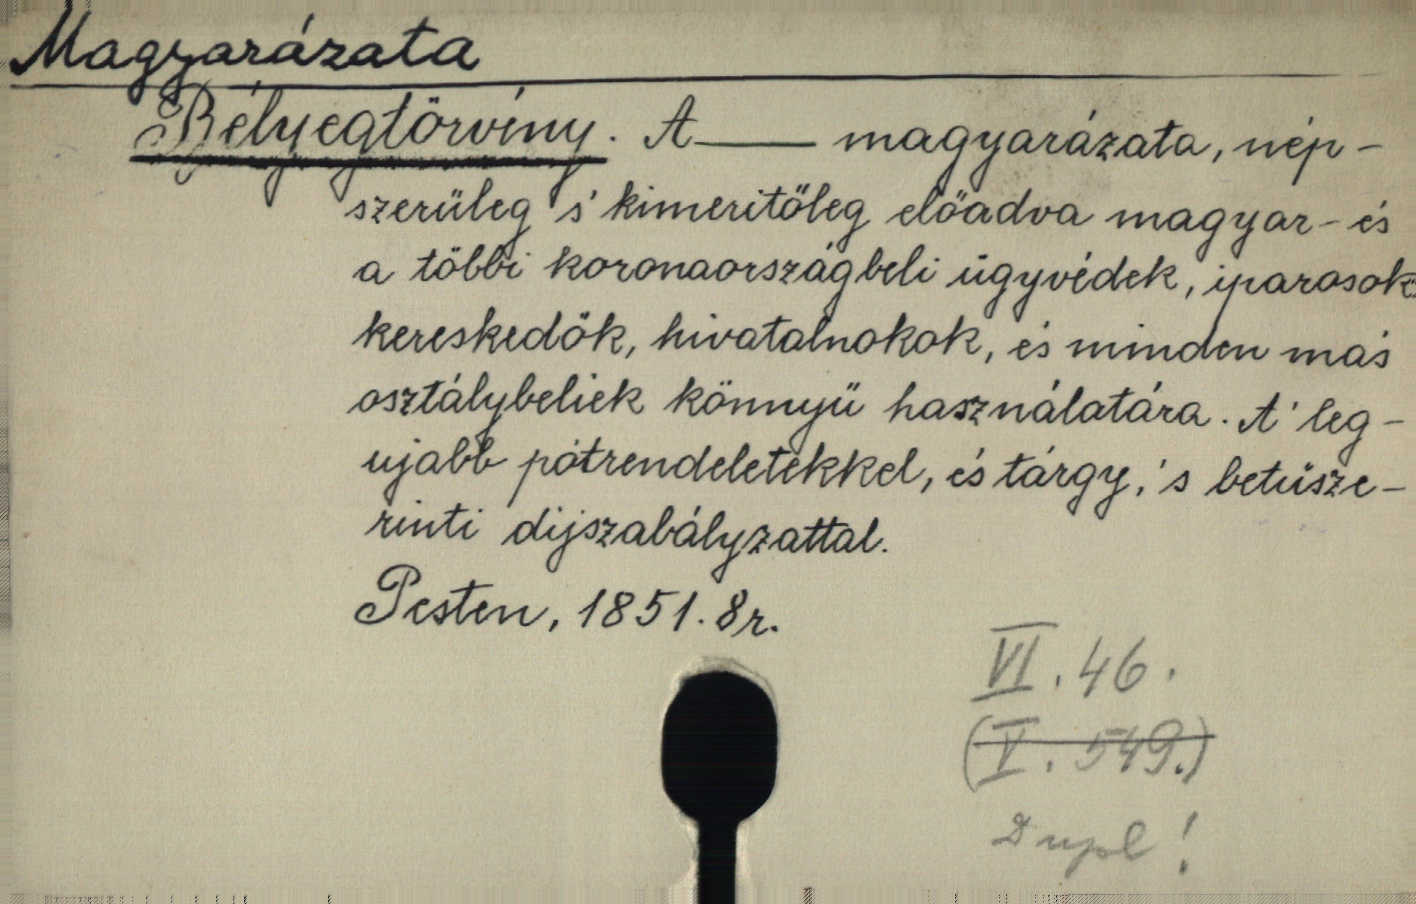 Magyarázata
Bélyegtörvény. A —— magyarázata, nép-
szerüleg 's kimeritőleg előadva magyar- és
a többi koronaországbeli ügyvédek, iparosok,
kereskedők, hivatalnokok, és minden más
osztálybeliek könnyü használatára. A' leg-
ujabb pótrendeletekkel, és tárgy, 's betüsze-
rinti dijszabályzattal.
Pesten, 1851. 8r.
VI. 46.
(V. 549.)
Dupl!